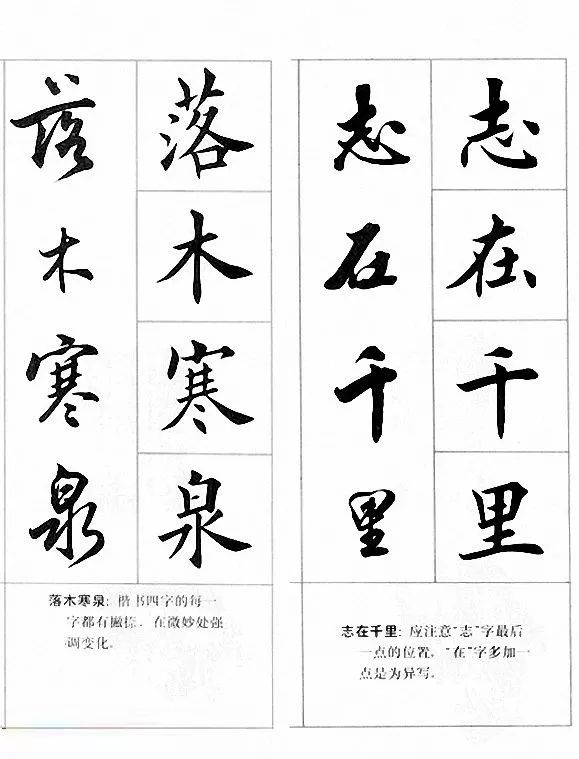 志在千里
志在千里
应注意“志”字最后
志在千里：应注意“志”字最后
一点的位置。“在”字多加一
点是为异写。
落木寒泉
落木寒泉
落木寒泉：楷书四字的每一
字都有撇捺，在微妙处强
调变化。